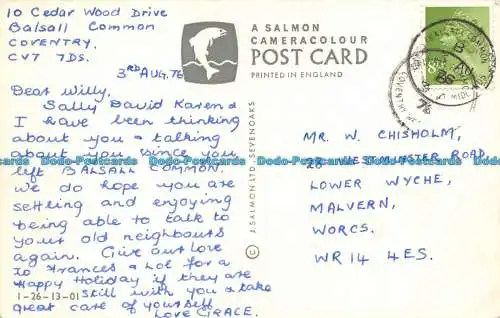 10 Cedar Wood Drive
Balsall Common
COVENTRY.
CV7 7DS.
3RD AUG. 76
Dear Willy,
Sally David Karen &
I have been thinking
about you & talking
about you since you
left BALSALL COMMON.
We do hope you are
settling and enjoying
being able to talk to
your old neighbours
again. Give our love
to Frances & Lol for a
Happy Holiday if they are
still with you & take
great care of yourself
Love GRACE.
1-26-13-01
A SALMON
CAMERACOLOUR
POST CARD
PRINTED IN ENGLAND
J. SALMON LTD. SEVENOAKS
©
MR. W. CHISHOLM,
28 WESTMINSTER ROAD,
LOWER WYCHE,
MALVERN,
WORCS.
WR14 4ES.
COVENTRY